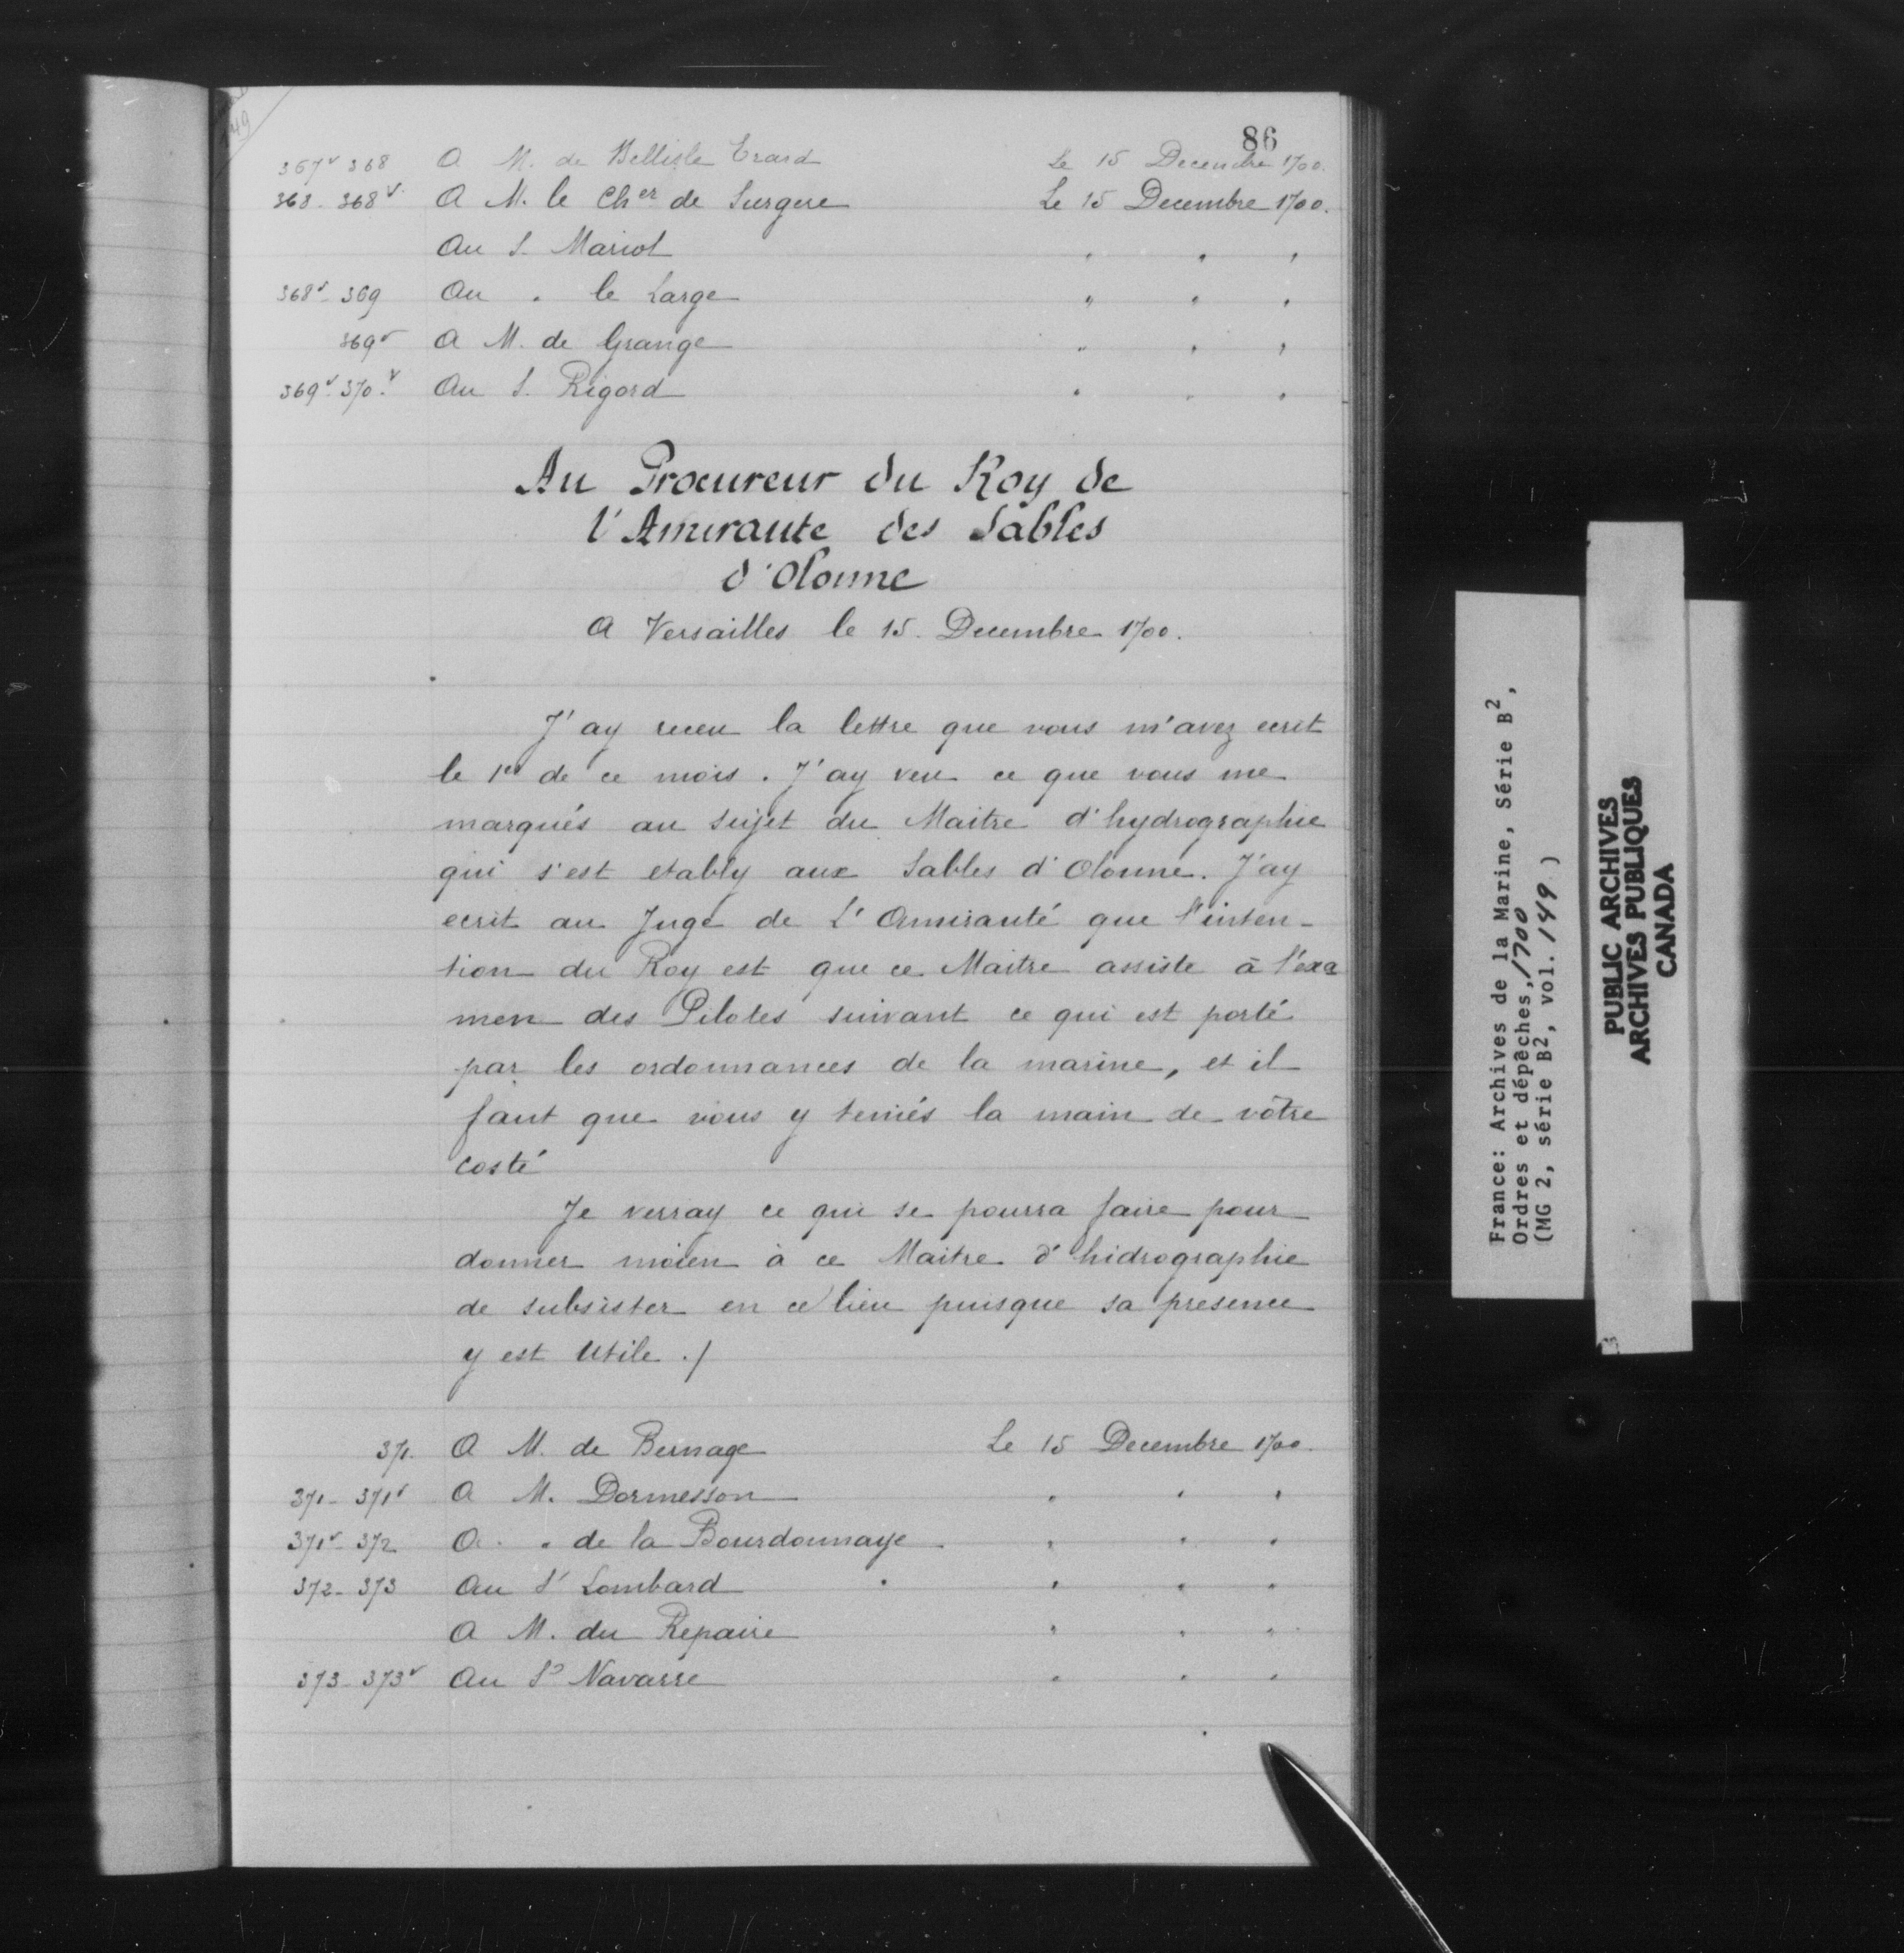 86
367v 368 A M. de Bellisle Erard Le 15 Decembre 1700.
368 - 368v. A M. le Cher de Surgere Le 15 Decembre 1700.
Au S. Mariot " " "
368v - 369 Au " le Large " " "
369v A M. de Grange " " "
369v. 370.v Au S. Rigord " " "
Au Procureur du Roy de
l'Amiraute des Sables
d'Olonne
A Versailles le 15. Decembre 1700.
J'ay receu la lettre que vous m'avez ecrit
le 1er de ce mois. J'ay veu ce que vous me
marqués au sujet du Maitre d'hydrographie
qui s'est etably aux Sables d'Olonne. J'ay
ecrit au Juge de L'Amirauté que l'inten-
tion du Roy est que ce Maitre assiste à l'exa
men des Pilotes suivant ce qui est porté
par les ordonnances de la marine, et il
faut que vous y teniés la main de vôtre
costé
Je verray ce qui se pourra faire pour
donner moien à ce Maitre d'hidrographie
de subsister en ce lieu puisque sa presence
y est utile ./
371. A M. de Bernage Le 15 Decembre 1700.
371 - 371v A M. Dormesson " " "
371v - 372 A " de la Bourdonnaye " " "
372 - 373 Au Sr Lombard " " "
A M. du Repaire " " "
373 - 373v Au Sr Navarre " " "
France: Archives de la Marine, Série B2,
Ordres et dépêches, 1700
(MG 2, série B2, vol. 149 )
PUBLIC ARCHIVES
ARCHIVES PUBLIQUES
CANADA